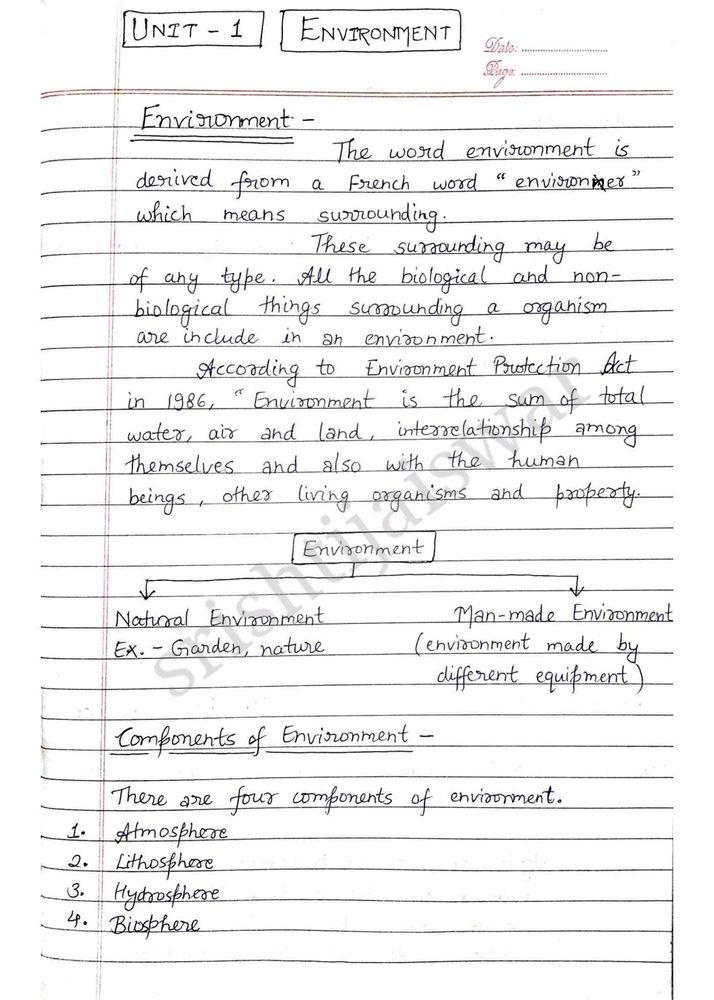 UNIT - 1 ENVIRONMENT
Date: ..............................
Page: ..............................
Environment -
The word environment is
derived from a French word "environner"
which means surrounding.
These surrounding may be
of any type. All the biological and non-
biological things surrounding a organism
are include in an environment.
According to Environment Protection Act
in 1986, "Environment is the sum of total
water, air and land, interrelationship among
themselves and also with the human
beings, other living organisms and property.
Environment
Natural Environment Man-made Environment
Ex. - Garden, nature (environment made by
different equipment)
Components of Environment -
There are four components of environment.
1. Atmosphere
2. Lithosphere
3. Hydrosphere
4. Biosphere
srishtijaiswar